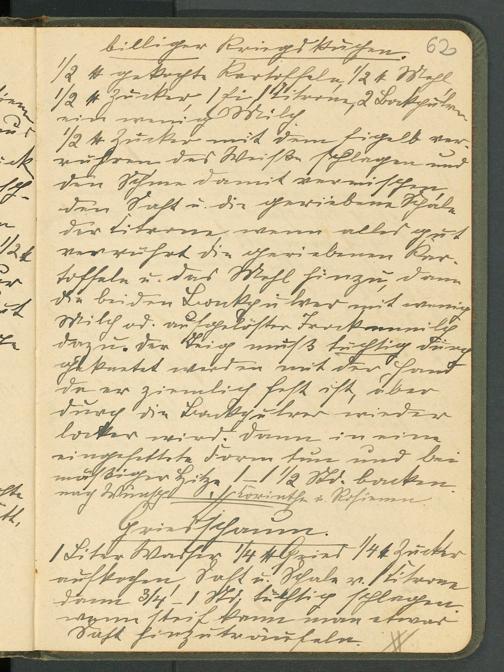 62
billiger Kriegskuchen.
1/2 ℔ gekochte Kartoffeln, 1/2 ℔ Mehl
1/2 ℔ Zucker 1 Ei, 1 Citrone, 2 Backpulver
ein wenig Milch.
1/2 ℔ Zucker mit dem Eigelb ver-
rühren das Weiße schlagen und
den Schnee damit vermischen
den Saft u. die geriebene Schale
der Citrone, wenn alles gut
verrührt die geriebenen Kar-
toffeln u. das Mehl hinzu, dann
die beiden Backpulver mit wenig
Milch od. aufgelöster Trockenmilch
dazu. Der Teig muß tüchtig durch
geknetet werden mit der Hand
da er ziemlich fest ist, aber
durch die Backpulver wieder
locker wird. Dann in eine
eingefettete Form tun und bei
mäßiger Hitze 1 - 1 1/2 Std. backen.
nach Wunsch Korinthe u. Rosienen
Griesschaum.
1 Liter Wasser 1/4 ℔ Gries 1/4 ℔ Zucker
aufkochen, Saft u. Schale v. 1 Citrone
dann 3/4 - 1 Std. tüchtig schlagen.
wenn steif kann man etwas
Saft hinzuträufeln.